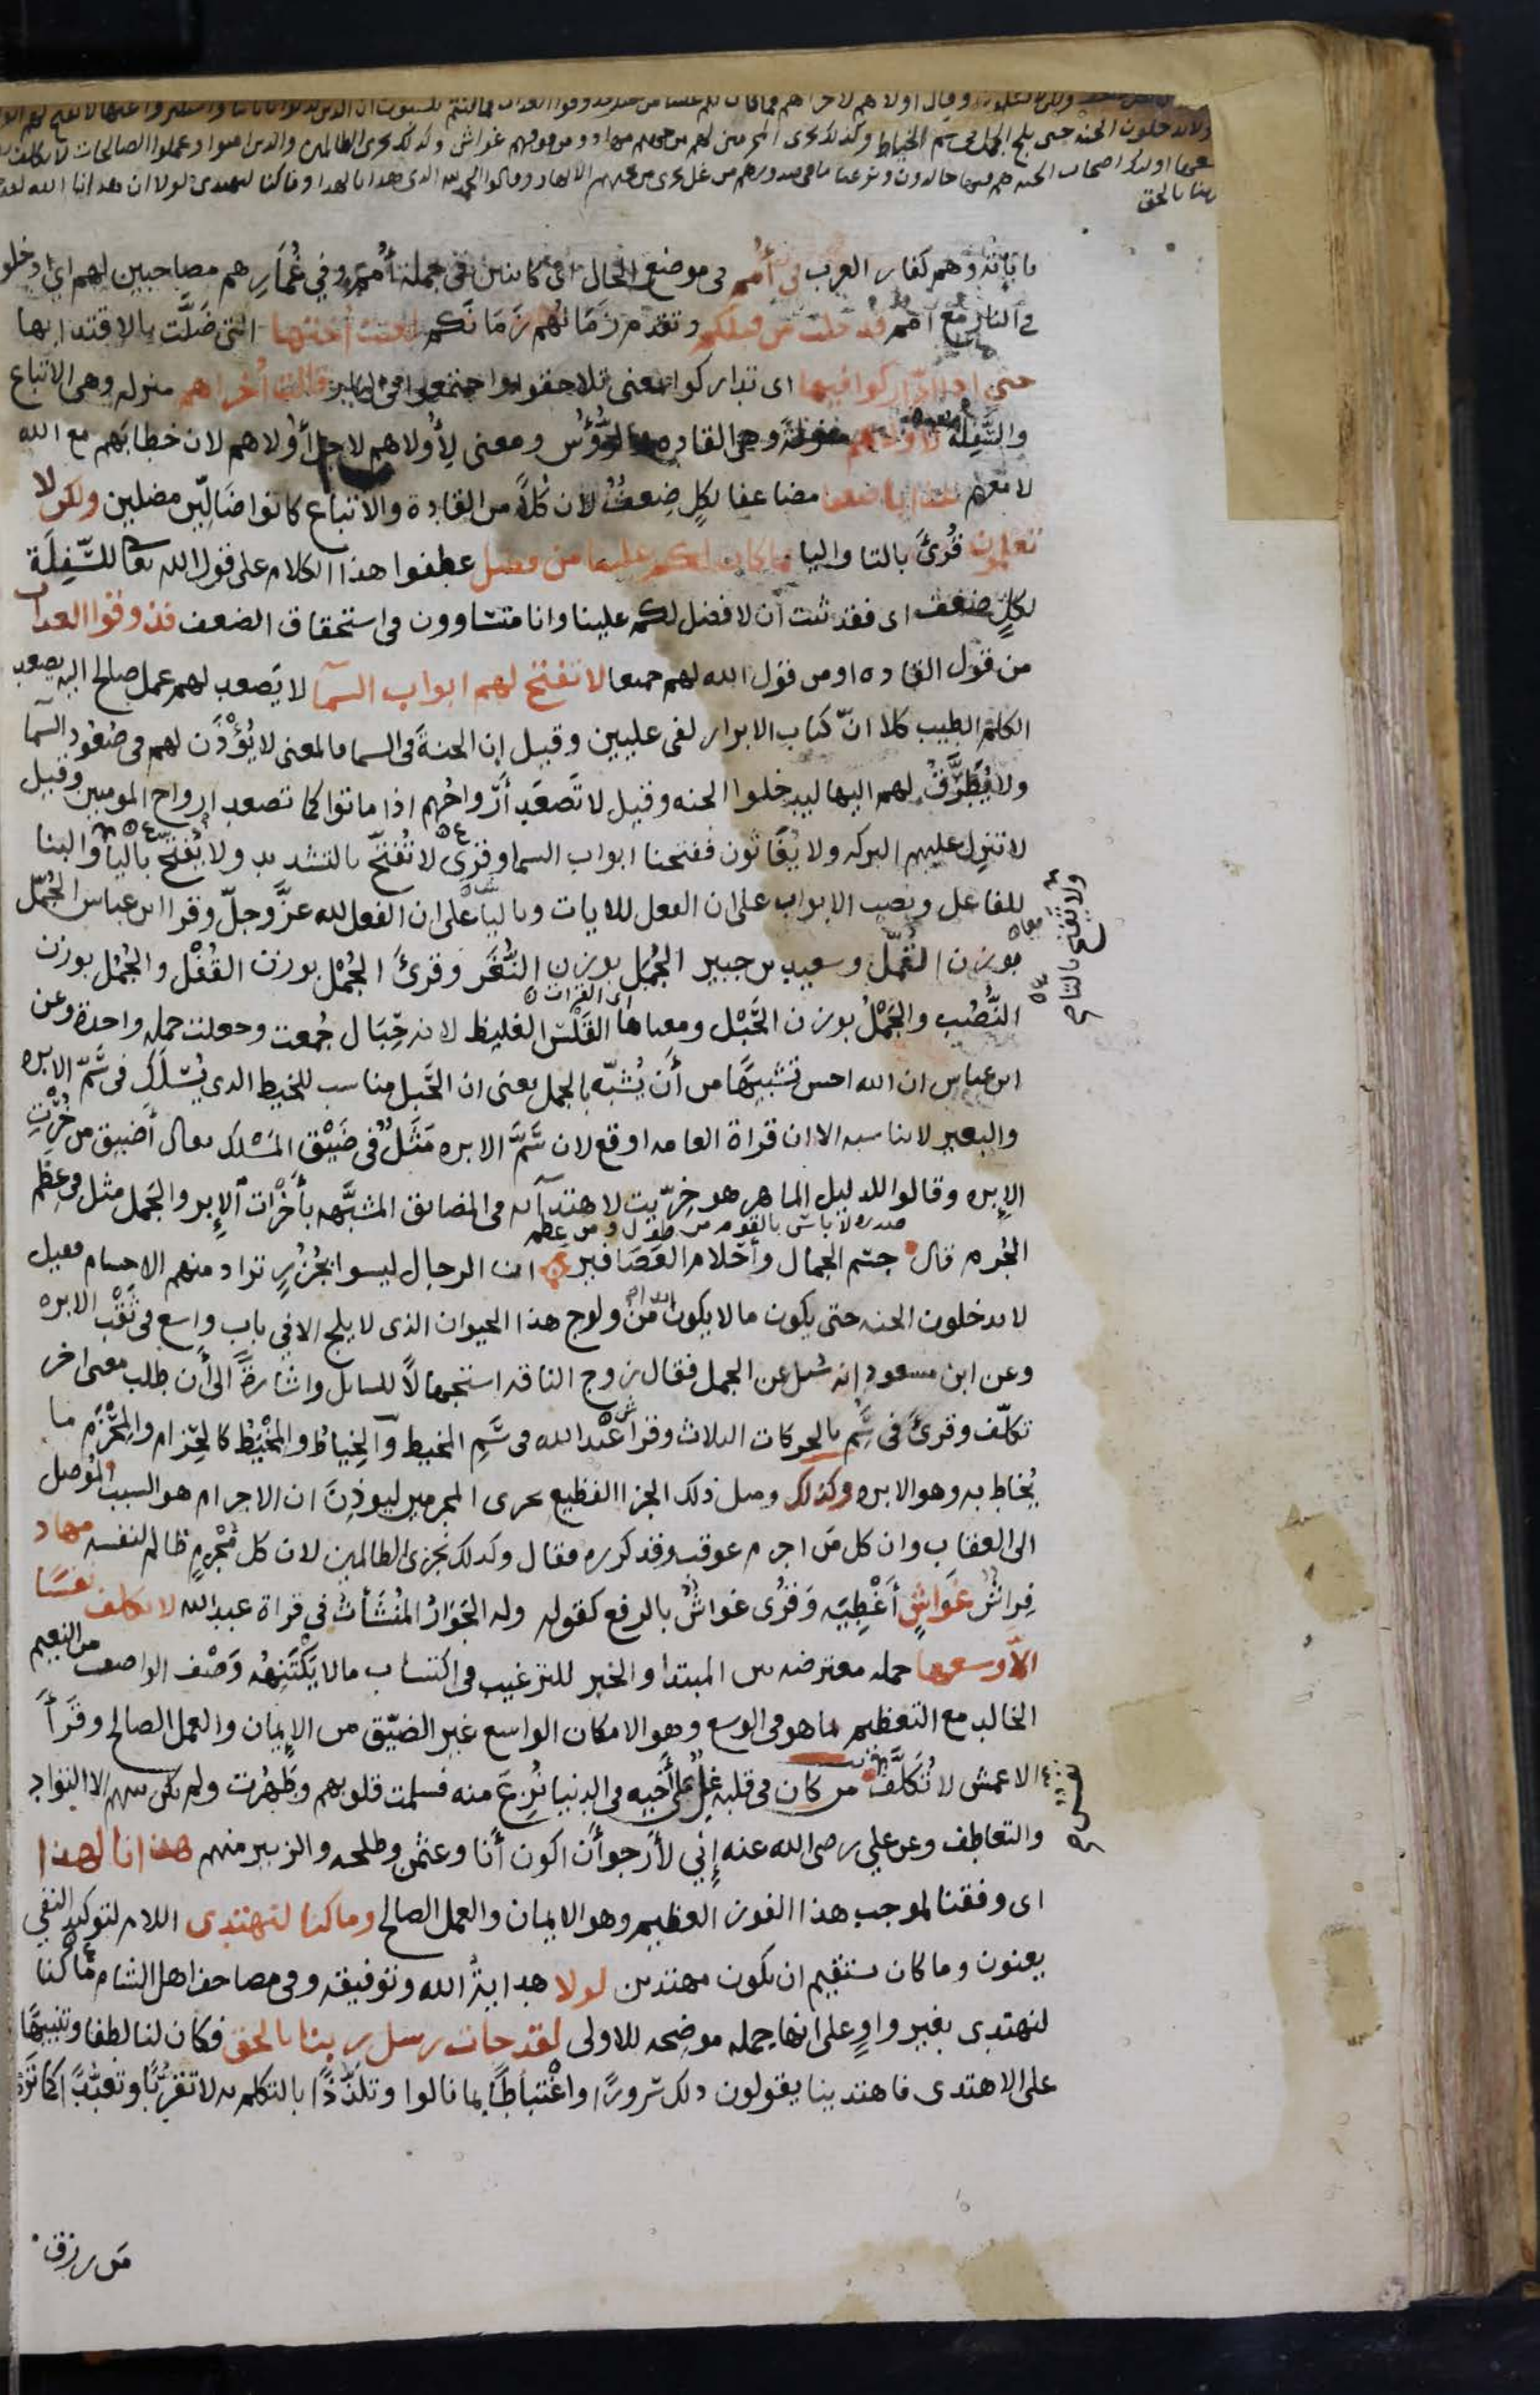 ولا يدخلون الجنه حتى يلج الجمل فى سم الخياط وكذلك نجزى المجرمين لهم من جهنم مهاد ومن فوقهم غواش وكذلك نجزى الظالمين والذين امنوا وعملوا الصالحات لا نكلف
اصحاب الجنه هم فيها خالدون ونزعنا ما فى صدورهم من غل تجرى من تحتهم الانهار وقالوا الحمد لله الذى هدانا لهذا وما كنا لنهتدى لولا ان هدانا الله لقد
ربنا بالحق
وهم كفار العرب فى أُمم فى موضع الحال اى كاينين فى جملة أُمم وفي غُمَارِهم مصاحبين لهم اى ادخلوا
فى النار مع امم قد خلت من قبلكم وتقدم زَمَانُهم زَمَانَكم لعنت أختها التى ضَلَّت بالاقتدا بها
حتى اذا ادّاركوا فيها اى تداركوا بمعنى تلاحقوا واجتمعوا فى النار قالت أُخراهم منزله وهى الاتباع
والسَّفِلَة لأولاهم منزلةً وهى القاده والرُّؤُس ومعنى لِأُولاهم لاجل أُولاهم لان خطابَهم مع الله
لا معهم عذابا ضعفا مضاعفا لكلٍ ضِعفٌ لان كُلاً من القادة والاتباع كانوا ضَالِّين مضلين ولكن لا
تعلمون قُرئَ بالتا واليا فما كان لكم علينا من فضل عطفوا هذا الكلام على قول الله تعالى للسَّفِلَة
لكلٍ ضعف اى فقد ثبت أن لا فضل لكم علينا وانا متساوون فى استحقاق الضعف فذوقوا العذاب
من قول القاده او من قول الله لهم جميعا لا تفتح لهم ابواب السمآ لا يَصعد لهم عمل صالح اليه يصعد
الكلم الطيب كلا انّ كتاب الابرار لفى عليين وقيل إن الجنةَ فى السما فالمعنى لا يُؤْذَن لهم فى صُعُود السمآ
ولا يُطَرَّقُ لهم اليها ليدخلوا الجنه وقيل لا تَصعَد أَرْواحُهم اذا ماتوا كما تصعد ارواح المومنين وقيل
لا تنزل عليهم البركه ولا يُغَاثون ففتحنا ابواب السما وقرئ لا تُفَتَّح بالتشديد ولا يُفْتَح باليا والبنا
للفاعل ونصب الابواب على ان الفعل للايات وباليا على ان الفعل لله عزَّ وجلّ وقرا ابن عباس الجُمّل
بوزن القُمّل وسعيد بن جبير الجُمَل بوزن النُّغَر وقرئَ الجُمْل بوزن القُفْل والجُمُل بوزن
النُّصُب والجَمْلُ بوزن الحَبْل ومعناها القَلْسُ الغليظ لانه حِبَال جُمعت وجعلت جمله واحدة وعن
ابن عباس ان الله احسن تشبيهًا من أَن يُشبّه بالجمل يعنى ان الحَبل مناسب للخيط الذى يُسْلَك فى سَمّ الابره
والبعير لا يناسبه الا ان قراة العامه اوقع لان سَمَّ الابره مَثَلٌ فى ضِيْق المَسْلك يقال أضيق من خُرْتِ
الإبره وقالوا للدليل الماهر هو خِرّيت لاهتدآئه فى المضايق المشبَّهه بأَخْرَات الإبر والجَمل مثل فى عِظَم
الجُرم قال جسم الجمال وأَحْلام العَصَافير ان الرجال ليسوا بجُزُرٍ تراد منهم الاجسام فقيل
لا يدخلون الجنه حتى يكون ما لا يكون من ولوج هذا الحيوان الذى لا يلج الا فى باب واسع فى ثَقْب الابره
وعن ابن مسعود انه سُئل عن الجمل فقال زوج الناقه استجهالاً للسائل واشارةً الى أن طلب معنى اخر
تكلّف وقرئَ فى سَمّ بالحركات الثلاث وقرأ عَبْد الله فى سَمِّ المخيط وٱلخِياطُ والمخْيَطُ كالحِزام والمِحْزَم ما
يُخاط به وهو الابره وكذلك ومثل ذلك الجزا الفظيع نجزى المجرمين ليوذِنَ ان الاجرام هو السبب المُوصل
الى العقاب وان كل مَن اجرم عوقب وقد كرره فقال وكذلك نجزى الظالمين لان كل مُجْرِمٍ ظالم لنفسه مهاد
فِراشٌ غَوَاشٍ أَغْطِيَه وَقُرى غواشٌ بالرفع كقوله وله الجَوَارُ المُنْشَأتُ فى قراة عبد الله لا نكلف نفسًا
الّا وسعها جمله معترضه بين المبتدا والخبر للترغيب فى اكتساب ما لا يَكْتَنِهُه وَصْف الواصف من النعيم
الخالد مع التعظيم بما هو فى الوسع وهو الامكان الواسع غير الضيّق من الإيمان والعمل الصالح وقَرأَ
الاعمش لا تُكَلَّف نفسٌ من كان فى قلبه غِلٌ على أَخيه فى الدنيا نُزِعَ منه فسلمت قلوبهم وطَهُرت ولم يكن بينهم الا التوادّ
والتعاطف وعن علي رضى الله عنه إنِي لأَرجو أَن اكون أنا وعثمن وطلحه والزبير منهم هدانا لهذا
اى وفقنا لموجب هذا الفوز العظيم وهو الايمان والعمل الصالح وما كنا لنهتدى اللام لتوكيد النفى
يعنون وما كان يستقيم ان نكون مهتدين لولا هدايةُ الله وتوفيقه وفى مصاحف اهل الشام ما كنا
لنهتدى بغير واوٍ على انها جمله موضِحه للاولى لقد جات رسل ربنا بالحق فكان لنا لطفا وتنبيهًا
على الاهتدى فاهتدينا يقولون ذلك سرورًا واغْتباطًا بما نالوا وتلذُّذًا بالتكلم به لا تقرُّبًا وتعبُّدًا كما تَرَى
من رزق
ولا تفتح بالتا